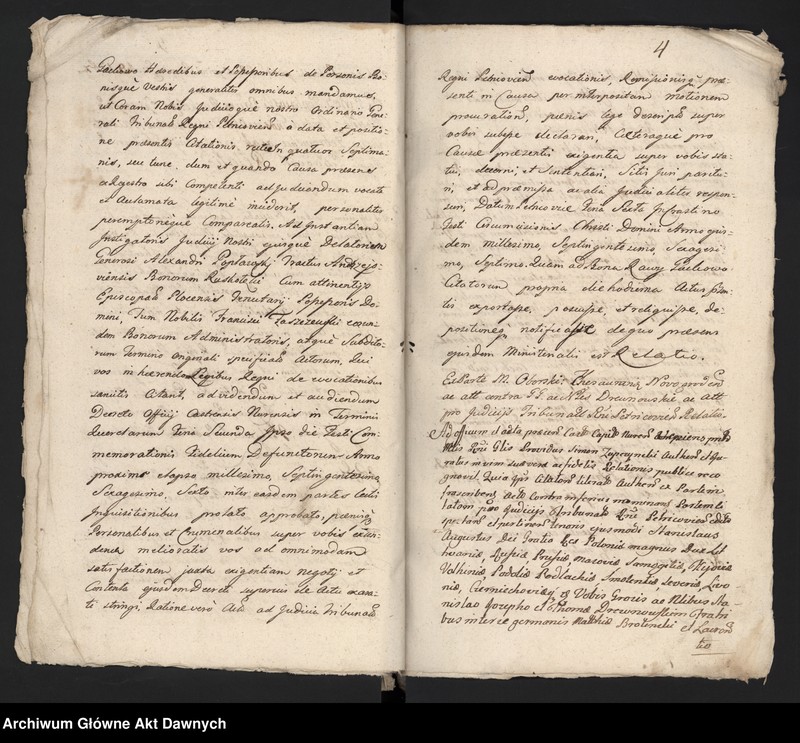 Paclowo Haeredibus et Possessoribus de Personis Bo-
nisque Vestris generaliter omnibus mandamus,
ut Coram Nobis Judicioque nostro Ordinario Gene
rali Tribunali Regni Petricovien a data et positio
ne praesentis Citationis in quatuor Septima-
nis, seu tunc, dum et quando Causa praesens
ex Regestro sibi Competenti ad judicandum vocata
et acclamata legitime inciderit, personaliter
peremptorieque Compareatis. Ad Instantiam
Instigatoris Judicii Nostri ejusque Delatorum
Generosi Alexandri Popławski Tractus Andrzejo-
viensis Bonorum Ruskołęki cum attinentijs
Episcopatus Plocensis Tenutarij Possessoris Do-
mini, Tum Nobilis Francisci Taszczewski eorun-
dem Bonorum Administratoris, atque Subdito-
rum Termino Originali specificat Actorum, Qui
vos inhaerendo Legibus Regni de evocationibus
sancitis Citant, ad videndum et audiendum
Decreto Officij Castrensis Nurensis in Termino
querelarum Feria Secunda Ipso die Festi Com-
memorationis Fidelium Defunctorum Anno
proxime elapso millesimo, Septingentesimo,
Sexagesimo, Sexto inter easdem partes Ceu
Inquisitionibus prolato, approbato, poenisq
Personalibus et Criminalibus super vobis exten-
dendis melioratis vos ad omnimodam
satisfactionem juxta exigentiam negotij et
Contenta ejusdem Decreti superius de Actu exara-
ti stringi, Ratione vero Acti ad Judicia Tribunalis
4
Regni Petricovien evocationis, Remissionisq prae-
senti in Causa per interpositam motionem
procuration, poenis lege descriptis super
vobis subesse declarari, Caeteraque pro
Causae praesentis exigentia super vobis sta-
tui, decerni, et Sententiari, Sitis Juri paritu-
ri, et ad praemissa ac alia Judicialiter respon-
suri, Datum Petricoviae Feria Sexta Infrastino
Festi Circumcisionis Christi Domini Anno ejus-
dem millesimo, Septingentesimo, Sexagesi-
mo, Septimo. Quam ad Bona Rawy Paclowo
Citatorum propria die hodierna Actus praesen-
tis exportasse, posuisse, et reliquisse, de-
positioneq notificasse de quo praesens
ejusdem Ministerialis est Relatio.
Ex Parte M. Oborski Thesaurarij Novogroden
ac att contra GG ac Nles Drewnowskie ac Att
pro Judicijs Tribunalis Rni Petricovien Relatio.
Ad Officium et acta praesen Castr Capit Nuren
Mlis Rni Glis Providus Simon Author et Ju-
ratus in vim suae verae ac fidelis Relationis publice reco
gnovit, Quia ipse Citatem literalem Authen ex Parte in-
frascriben Acto Contra inferius nominan Partem Ci-
tatem pro Judicijs Tribunalis Rni Petricovien
spectan et pertinen tenoris ejusmodi Stanislaus
Augustus Dei Gratia Rex Poloniae magnus Dux Lit
hvaniae, Russiae Prussiae Masoviae Samogitiae, Kijoviae
Volhiniae Podoliae Podlachiae Smolensciae Severiae Livo
niae, Czerniechoviaeq Vobis Grosis ac Nlibus Sta-
nislao Josepho et Thomae Drewnowskim Fratri
bus inter se germanis Matthiae Brolinski et Lauren
tio
Archiwum Główne Akt Dawnych